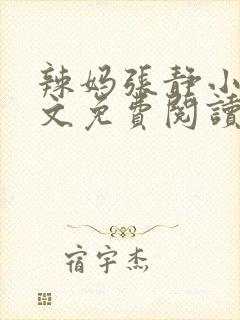 辣妈張靜小
文免費閱讀
宿宇杰